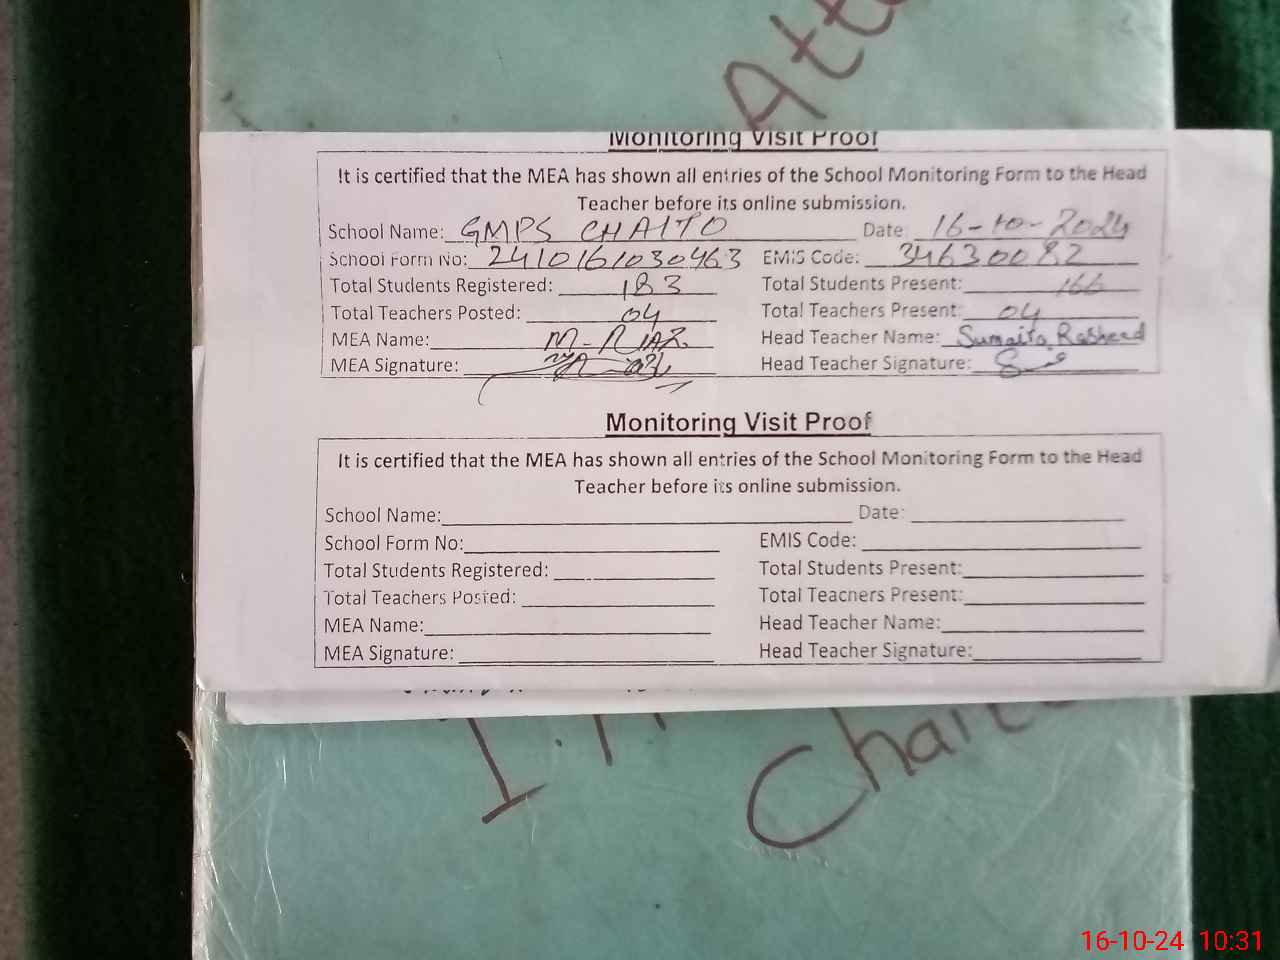 Att
Monitoring Visit Proof
It is certified that the MEA has shown all entries of the School Monitoring Form to the Head
Teacher before its online submission.
School Name: GMPS CHAITO Date: 16-10-2024
School Form No: 2410161030463 EMIS Code: 34630082
Total Students Registered: 183 Total Students Present: 166
Total Teachers Posted: 04 Total Teachers Present: 04
MEA Name: M-RIAZ. Head Teacher Name: Sumaita Rasheed
MEA Signature: Head Teacher Signature:
Monitoring Visit Proof
It is certified that the MEA has shown all entries of the School Monitoring Form to the Head
Teacher before its online submission.
School Name: Date:
School Form No: EMIS Code:
Total Students Registered: Total Students Present:
Total Teachers Posted: Total Teachers Present:
MEA Name: Head Teacher Name:
MEA Signature: Head Teacher Signature:
16-10-24 10:31